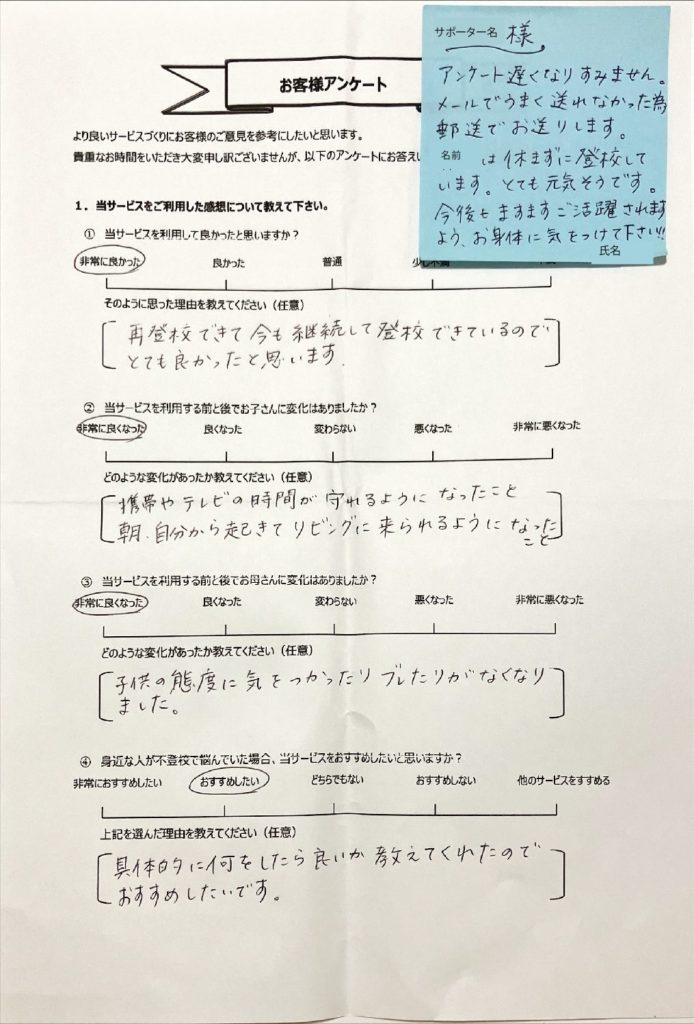 お客様アンケート
より良いサービスづくりにお客様のご意見を参考にしたいと思います。
貴重なお時間をいただき大変申し訳ございませんが、以下のアンケートにお答えい
サポーター名 様
アンケート遅くなりすみません。
メールでうまく送れなかった為
郵送でお送りします。
名前 は休まずに登校して
います。とても元気そうです。
今後もますますご活躍されます
よう、お身体に気をつけて下さい!!
氏名
1. 当サービスをご利用した感想について教えて下さい。
① 当サービスを利用して良かったと思いますか？
非常に良かった 良かった 普通
そのように思った理由を教えてください（任意）
再登校できて今も継続して登校できているので
とても良かったと思います.
② 当サービスを利用する前と後でお子さんに変化はありましたか？
非常に良くなった 良くなった 変わらない 悪くなった 非常に悪くなった
どのような変化があったか教えてください（任意）
携帯やテレビの時間が守れるようになったこと
朝、自分から起きてリビングに来られるようになった
こと
③ 当サービスを利用する前と後でお母さんに変化はありましたか？
非常に良くなった 良くなった 変わらない 悪くなった 非常に悪くなった
どのような変化があったか教えてください（任意）
子供の態度に気をつかったりブレたりがなくなり
ました。
④ 身近な人が不登校で悩んでいた場合、当サービスをおすすめしたいと思いますか？
非常におすすめしたい おすすめしたい どちらでもない おすすめしない 他のサービスをすすめる
上記を選んだ理由を教えてください（任意）
具体的に何をしたら良いか教えてくれたので
おすすめしたいです。